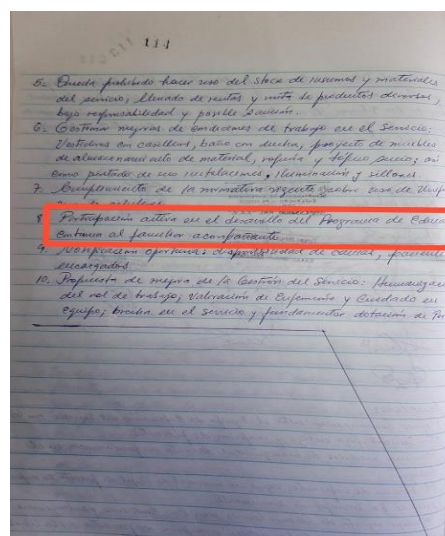 114
5. Queda prohibido hacer uso del stock de insumos y materiales
del servicio; llenado de recetas y venta de productos diversos,
bajo responsabilidad y posible sanción.
6. Gestionar mejoras de condiciones de trabajo en el Servicio:
Vestidores con casilleros, baño con ducha, proyecto de muebles
de almacenamiento de material, ropa y sucio; así
como pintado de instalaciones, iluminación y sillones.
7. Cumplimiento de la normativa vigente sobre uso de Unif
8. Participación activa en el desarrollo del Programa de Educa
continua al familiar acompañante.
9. Notificación oportuna: disponibilidad de camas, paciente
encargados.
10. Propuesta de mejora de la Gestión del Servicio: Humanizac
del rol de trabajo; Valoración de Enfermería y Cuidado en
equipo; brecha en el servicio y fundamentar dotación de